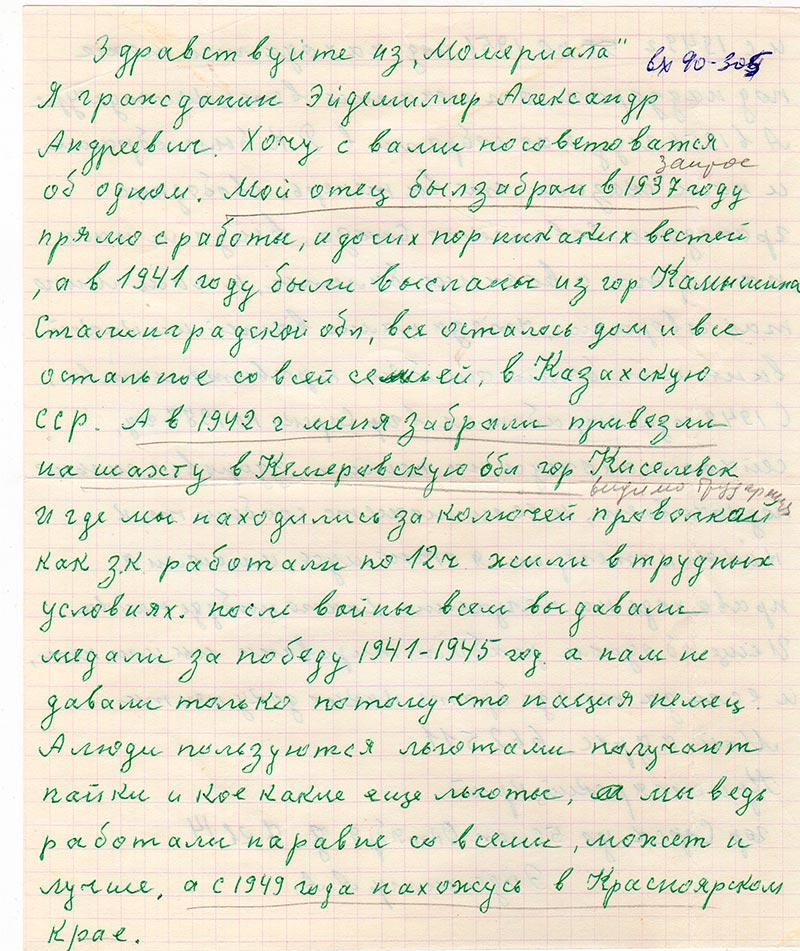 Здравствуйте из „Момериала"
вх 90-305
Я гражданин Эйдемиллер Александр
Андреевич. Хочу с вами посоветоватся
запрос
об одном. Мой отец был забран в 1937 году
прямо с работы, и до сих пор никаких вестей
, а в 1941 году были высланы из гор Камышина
Сталинградской обл, все осталось дом и все
остальное со всей семьей, в Казахскую
ССР. А в 1942 г меня забрали привезли
на шахту в Кемеравскую обл гор Киселевск
видимо Трудармия
И где мы находились за колючей праволкой
как з.к работали по 12ч жили в трудных
условиях. после войны всем выдавали
медали за победу 1941-1945 год. а нам не
давали только потому что нация немец.
А люди пользуются льготами получают
пайки и кое какие еще льготы, а мы ведь
работали наравне со всеми, может и
лучше, а с 1949 года нахожусь в Красноярском
крае.